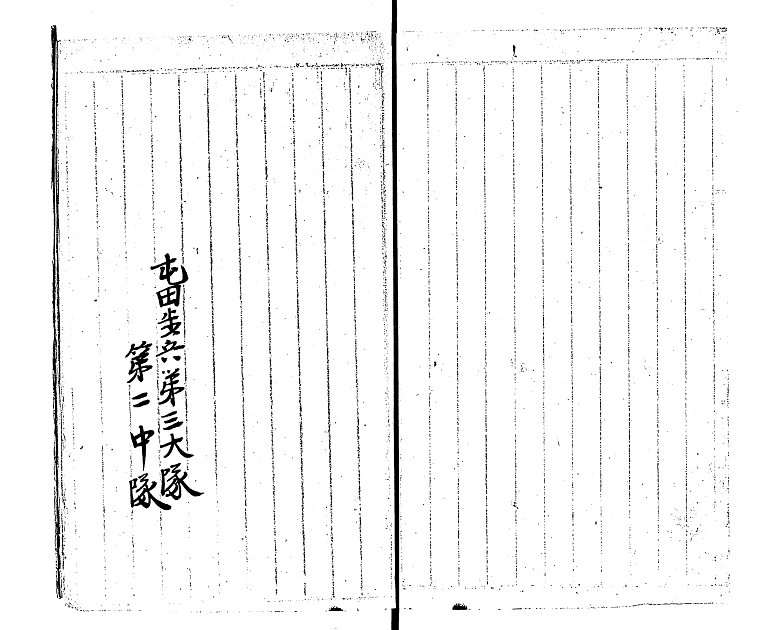 屯田歩兵第三大隊
第二中隊